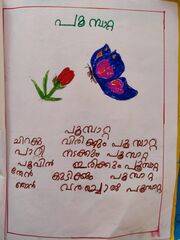 പൂമ്പാറ്റ
പൂമ്പാറ്റ
ചിറകു വിരിക്കും പൂമ്പാറ്റ
പാറി നടക്കും പൂമ്പാറ്റ
പൂവിൻ ഇരിക്കും പൂമ്പാറ്റ
തേൻ കുടിക്കും പൂമ്പാറ്റ
ഞാൻ പൂമ്പാറ്റ